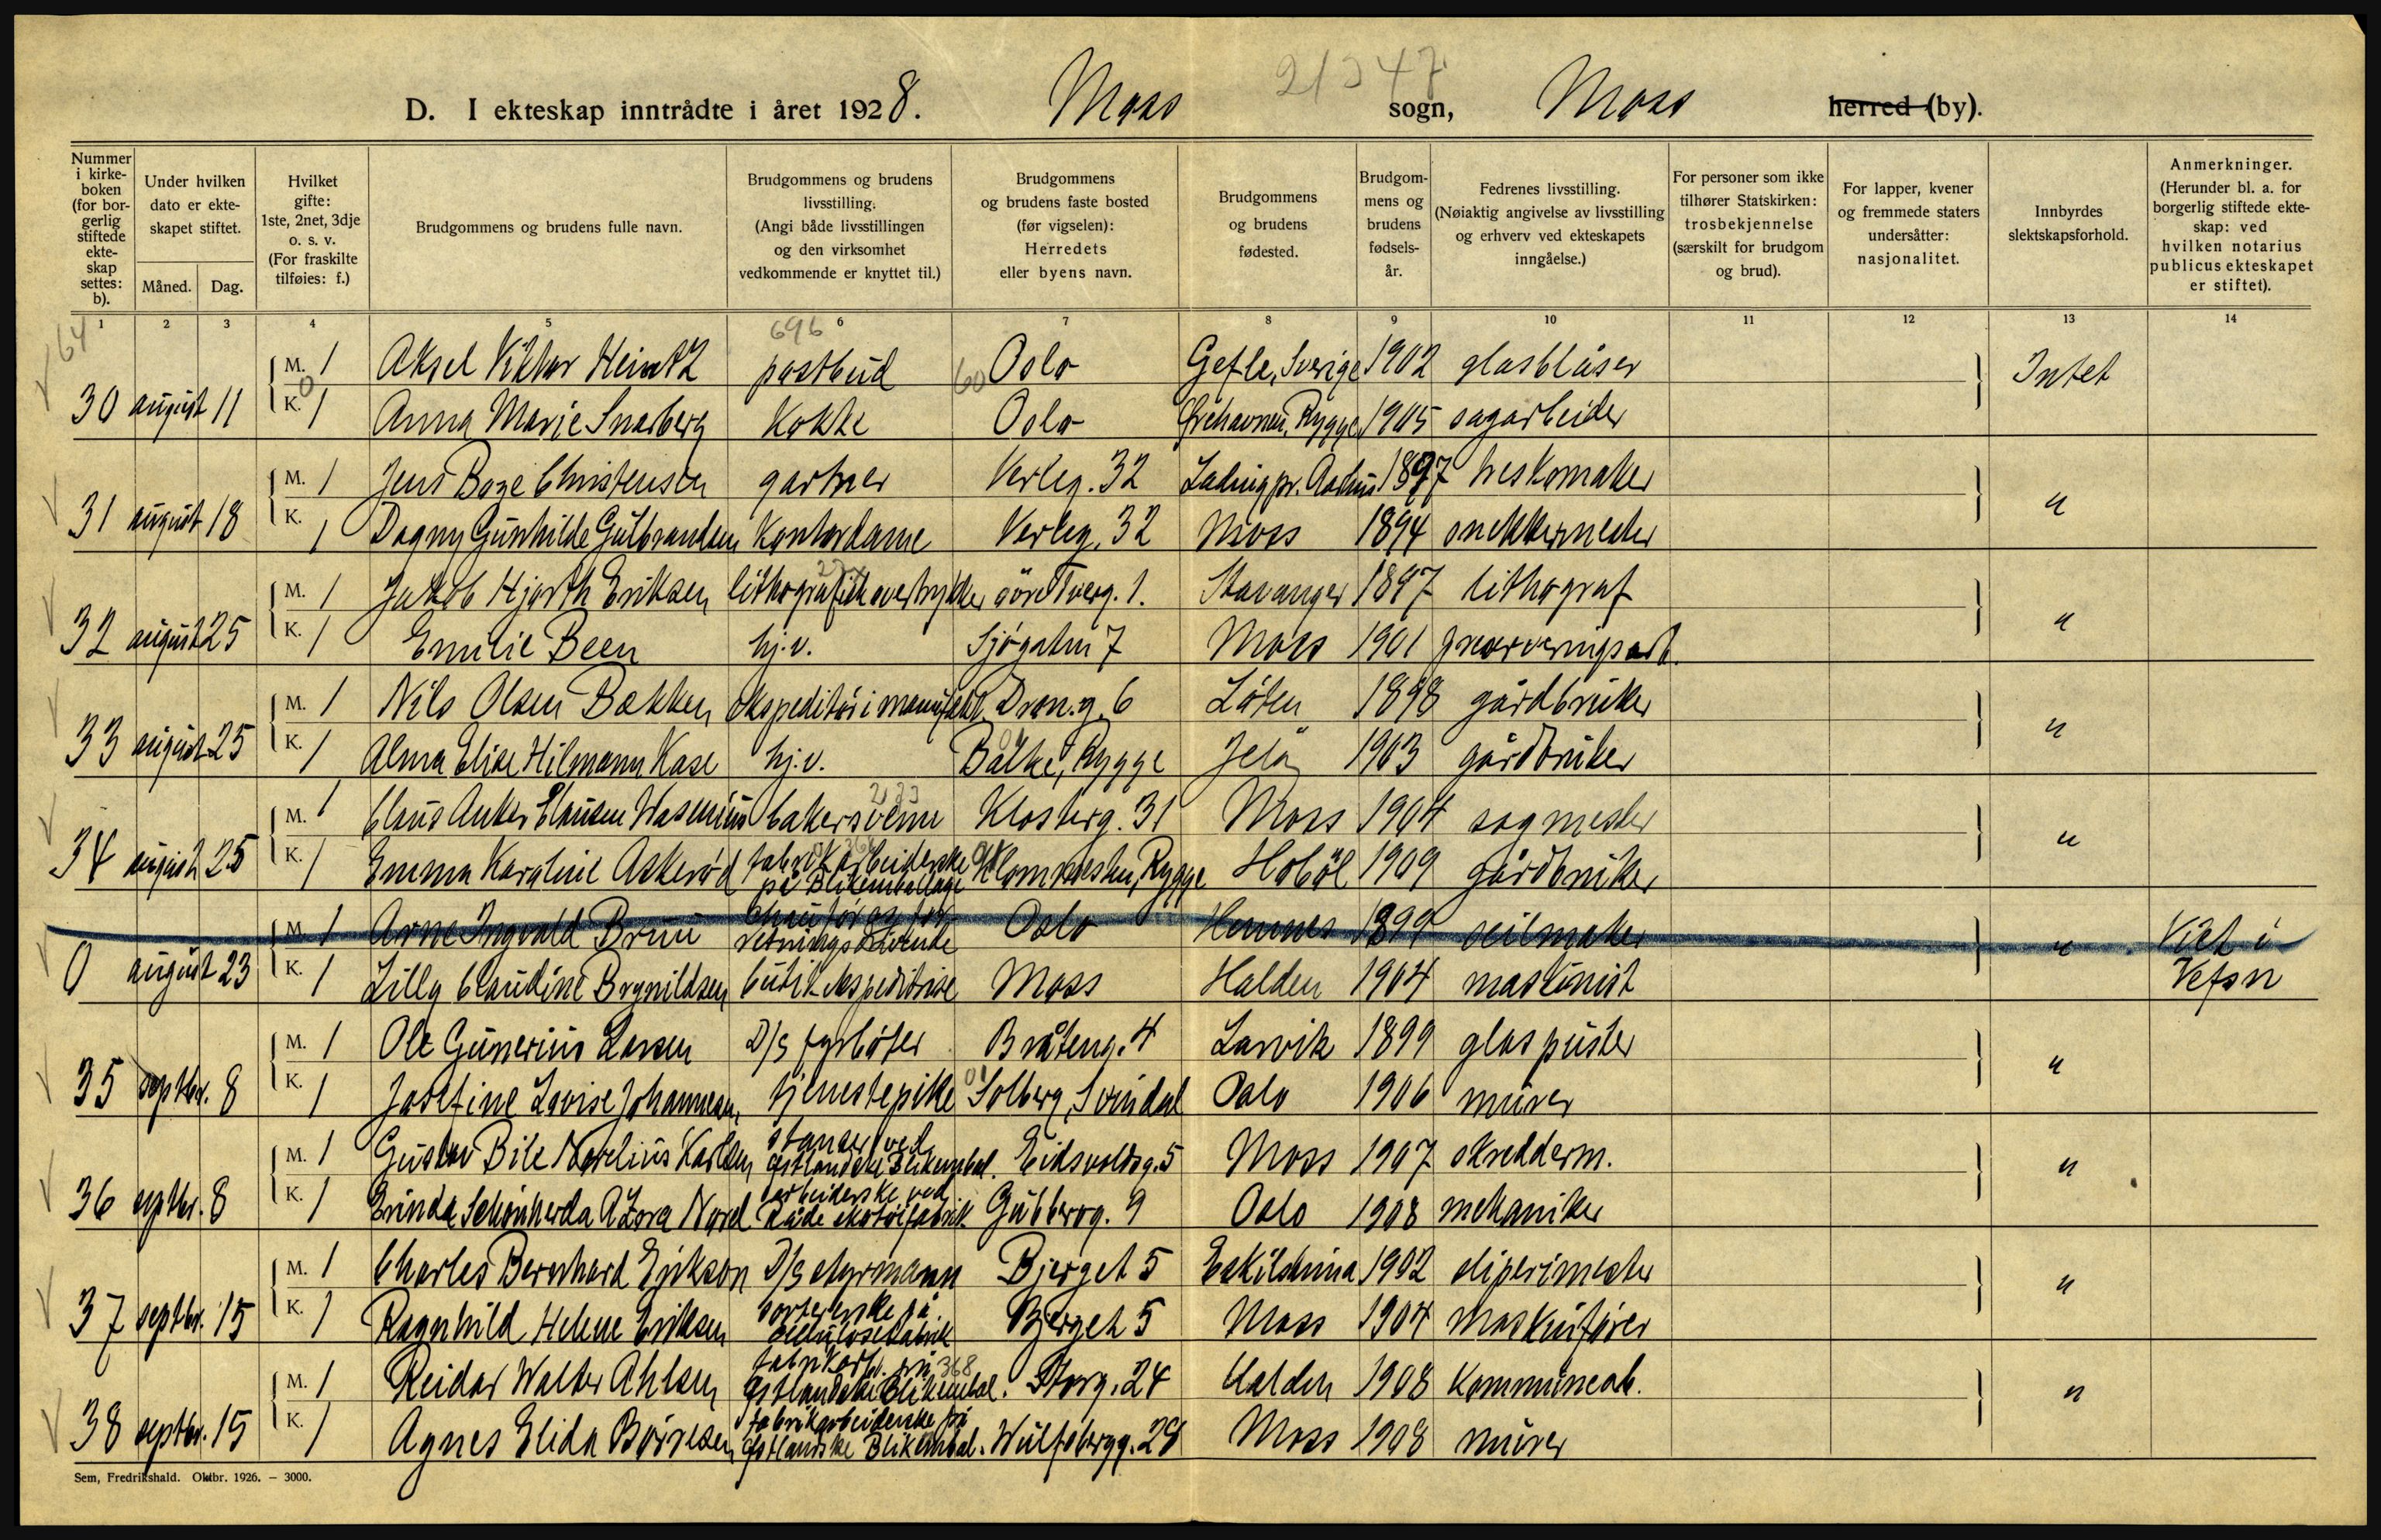 21347
D. I ekteskap inntrådte i året 1928. Moss sogn, Moss herred (by).
Nummer i kirke-boken (for bor-gerlig stiftede ekte-skap settes: b).
Under hvilken dato er ekte-skapet stiftet.
Måned. Dag.
Hvilket gifte: 1ste, 2net, 3dje o. s. v. (For fraskilte tilføies: f.)
Brudgommens og brudens fulle navn.
Brudgommens og brudens livsstilling. (Angi både livsstillingen og den virksomhet vedkommende er knyttet til.)
Brudgommens og brudens faste bosted (før vigselen): Herredets eller byens navn.
Brudgommens og brudens fødested.
Brudgom-mens og brudens fødsels-år.
Fedrenes livsstilling. (Nøiaktig angivelse av livsstilling og erhverv ved ekteskapets inngåelse.)
For personer som ikke tilhører Statskirken: trosbekjennelse (særskilt for brudgom og brud).
For lapper, kvener og fremmede staters undersåtter: nasjonalitet.
Innbyrdes slektskapsforhold.
Anmerkninger. (Herunder bl. a. for borgerlig stiftede ekte-skap: ved hvilken notarius publicus ekteskapet er stiftet).
1 2 3 4 5 6 7 8 9 10 11 12 13 14
64 696
M. 1 Aksel Viktor Heintz postbud Oslo Gefle, Sverige 1902 glasblåser Intet
30 august 11 K. 1 Anna Marie Snarberg kokke 60 Oslo Rygge 1905 sagarbeider
M. 1 Jens Boye Christensen gartner Verleg. 32 Lading pr. Aarhus 1897 treskomaker "
31 august 18 K. 1 Dagny Gunhilde Gulbrandsen kontordame Verleg. 32 Moss 1894 snekkermester
M. 1 Jakob Hjorth Eriksen lithografisk overtrykker øvre Tverg. 1. Stavanger 1897 lithograf "
32 august 25 K. 1 Emilie Been hj.v. Sjøgaten 7 Moss 1901
M. 1 Nils Olsen Bakken ekspeditør i manufakt. Dron.g. 6 Løten 1898 gårdbruker "
33 august 25 K. 1 Alma Elise Hilmann Kase hj.v. Batke, Rygge Jeløy 1903 gårdbruker
M. 1 Claus Anker Clausen Wasenius bakersvenn Klosterg. 31 Moss 1904 sagmester "
34 august 25 K. 1 Emma Karoline Askerød fabrikarbeiderske på Blikemballage Rygge Hobøl 1909 gårdbruker
M. 1 Arne Ingvald Bruu chauffør og forretningsdrivende Oslo Hemnes 1899 seilmaker " Viet i
0 august 23 K. 1 Lilly Claudine Brynildsen butikekspeditrise Moss Halden 1904 maskinist Vefsn
M. 1 Ole Gunerius Larsen D/s fyrbøter Bråteng. 4 Larvik 1899 glaspuster "
35 septbr. 8 K. 1 Josefine Lovise Johannesen, tjenestepike Solberg, Svindal Oslo 1906 murer
M. 1 Gustav Bile Norelius Karlsen stanser ved Østlandske Blikembal. Eidsvoldsg. 5 Moss 1907 skredderm. "
36 septbr. 8 K. 1 Erinda Schønherda A Zora Nord arbeiderske ved Råde skotøifabrik Gubberog. 9 Oslo 1908 mekaniker
M. 1 Charles Bernhard Erikson D/s styrmann Bjerget 5 Eskilstuna 1902 sliperimester "
37 septbr. 15 K. 1 Ragnhild Helene Eriksen sortererske på cellulosefabrik Bjerget 5 Moss 1904 maskinfører
M. 1 Reidar Walter Ahlsen fabrikarb. på 368 Østlandske Blikembal. Storg. 24 Halden 1908 kommunearb. "
38 septbr. 15 K. 1 Agnes Elida Børresen fabrikarbeiderske på Østlandske Blikembal. Wulfsbergg. 28 Moss 1908 murer
Sem, Fredrikshald. Oktbr. 1926. – 3000.